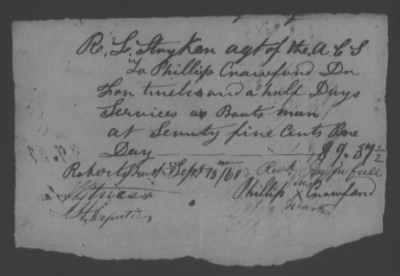 R. L. Stryker agt of the A C S
To Phillip Crawford Dr
For twelve and a half Days
Services as Boats man
at Seventy five Cents Per
Day $9.37½
Robertsport Sept 13th/60 Recd Payt in full
Witness
Phillip X Crawford
mark